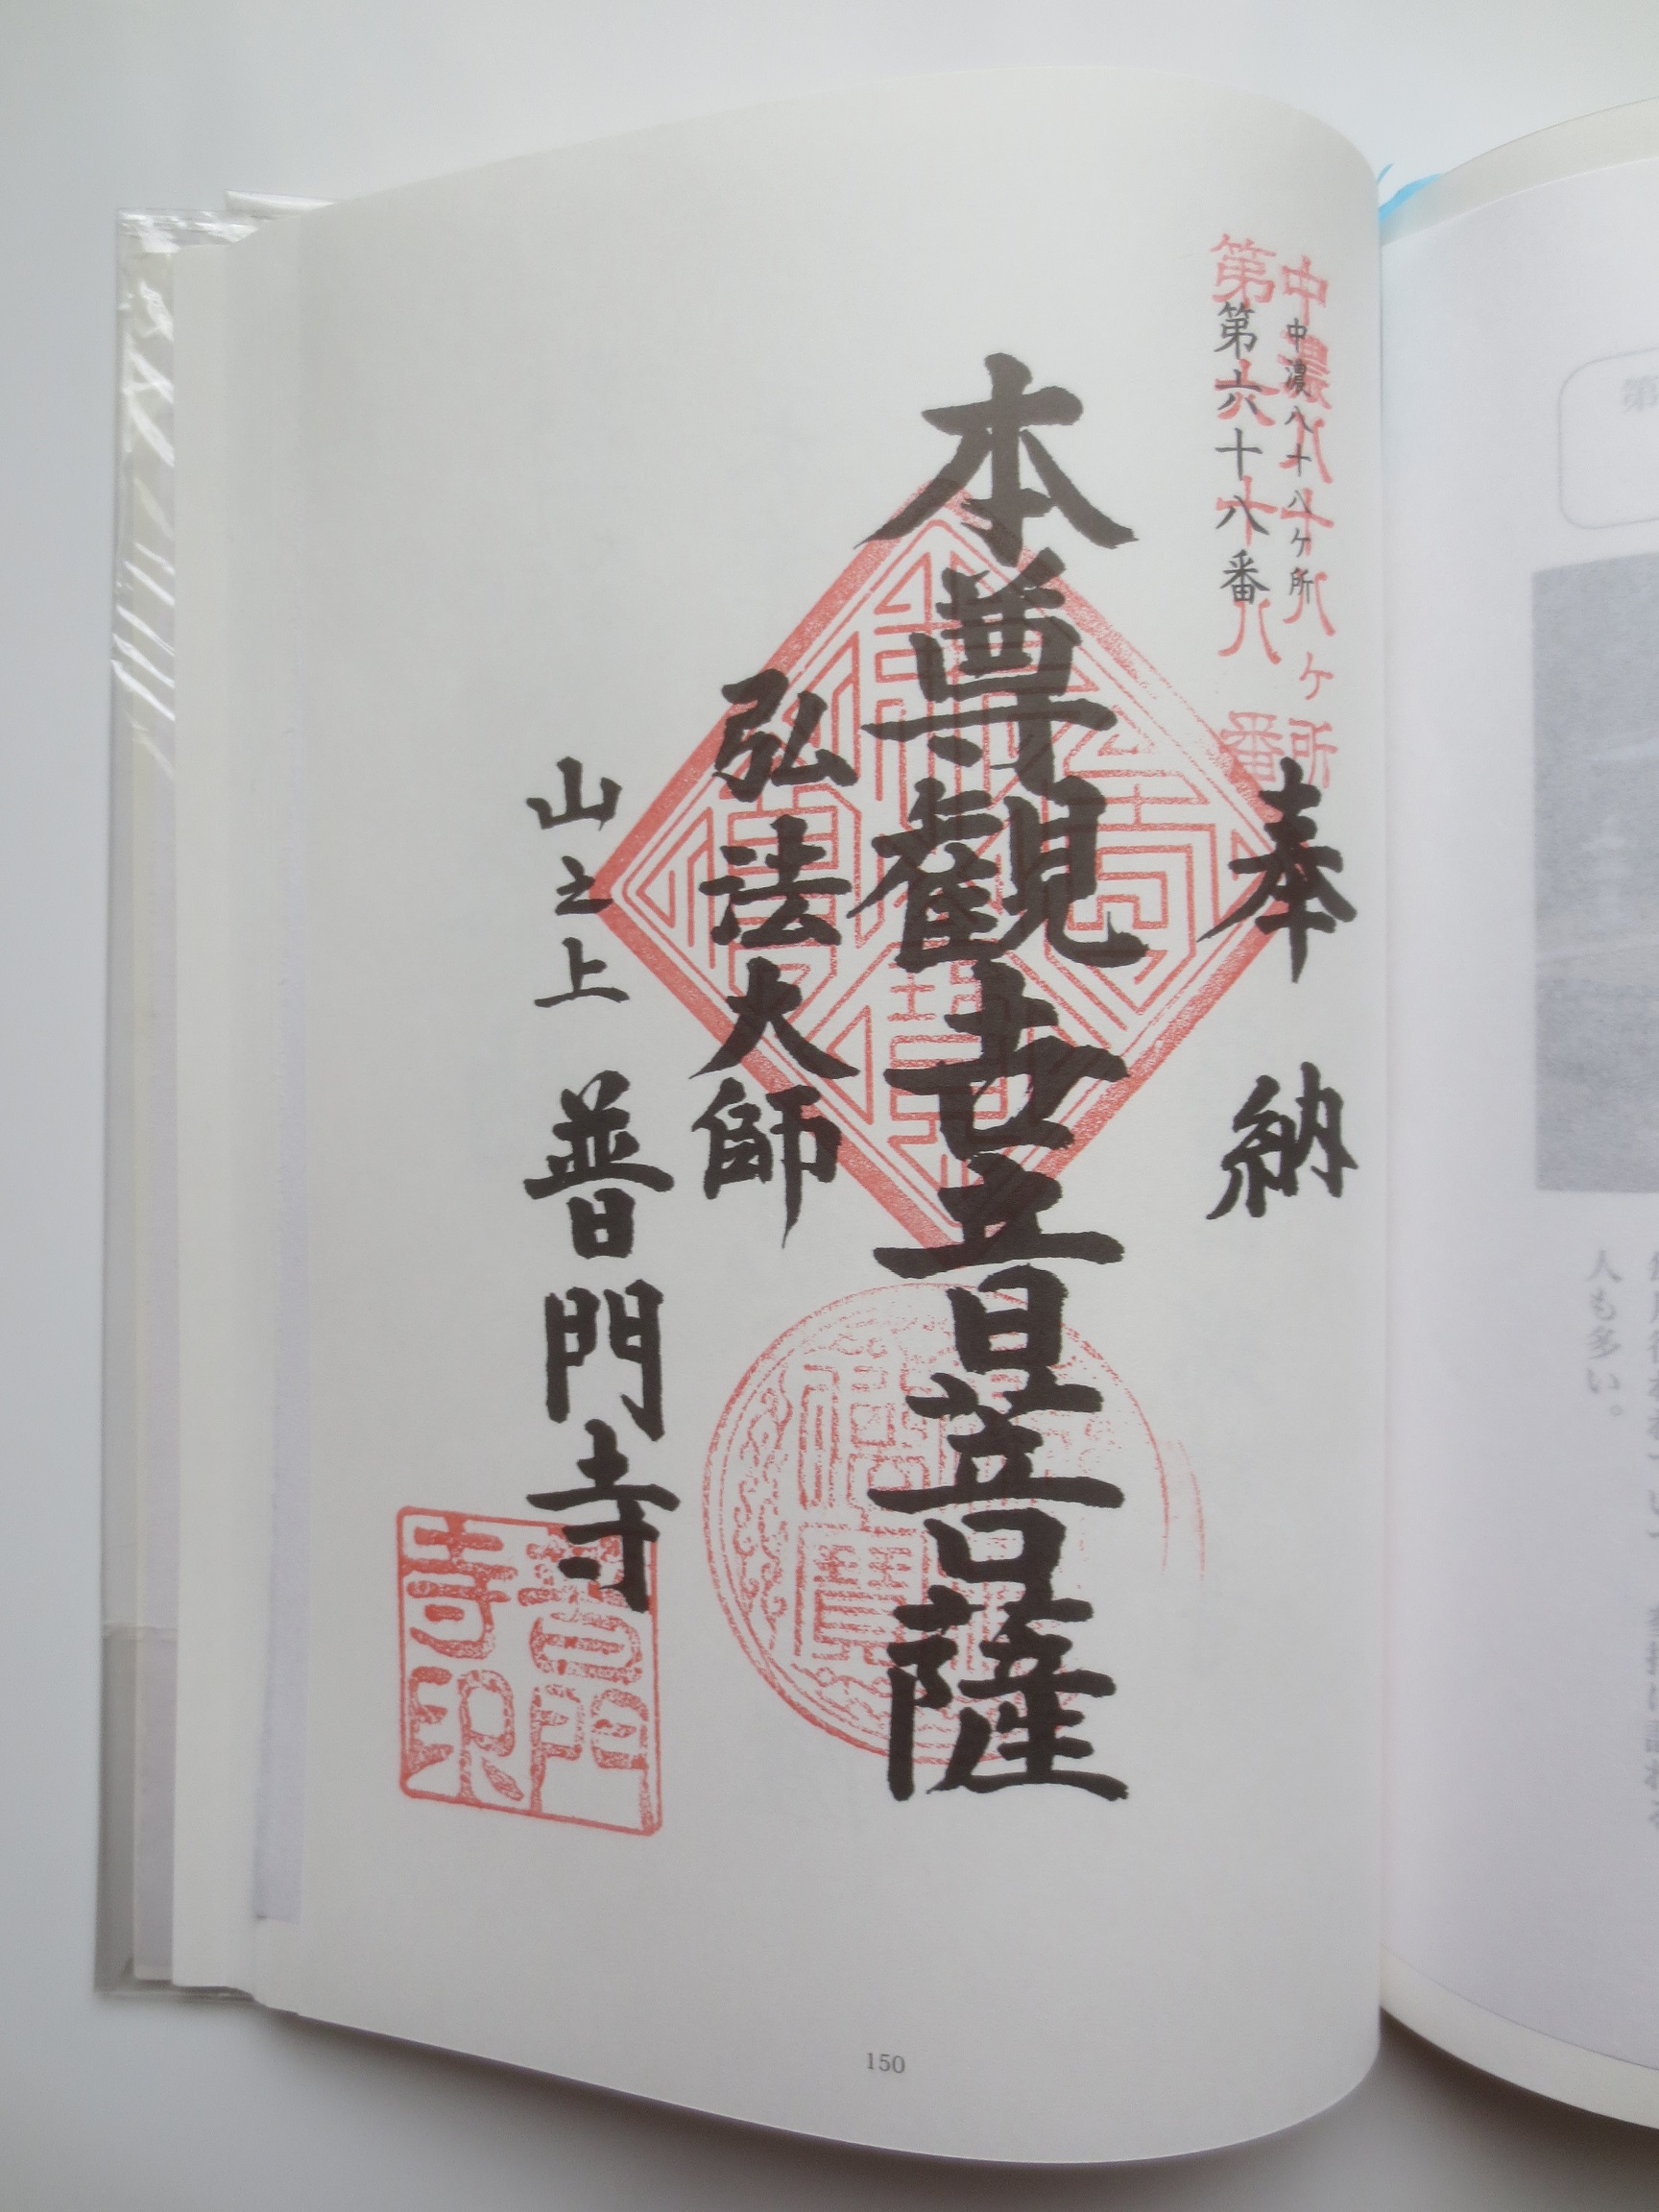 人も多い。
中濃八十八ヶ所
第六十八番
中濃八十八ヶ所
第六十八番
奉納
本尊観世音菩薩
弘法大師
山之上 普門寺
普門
寺印
150